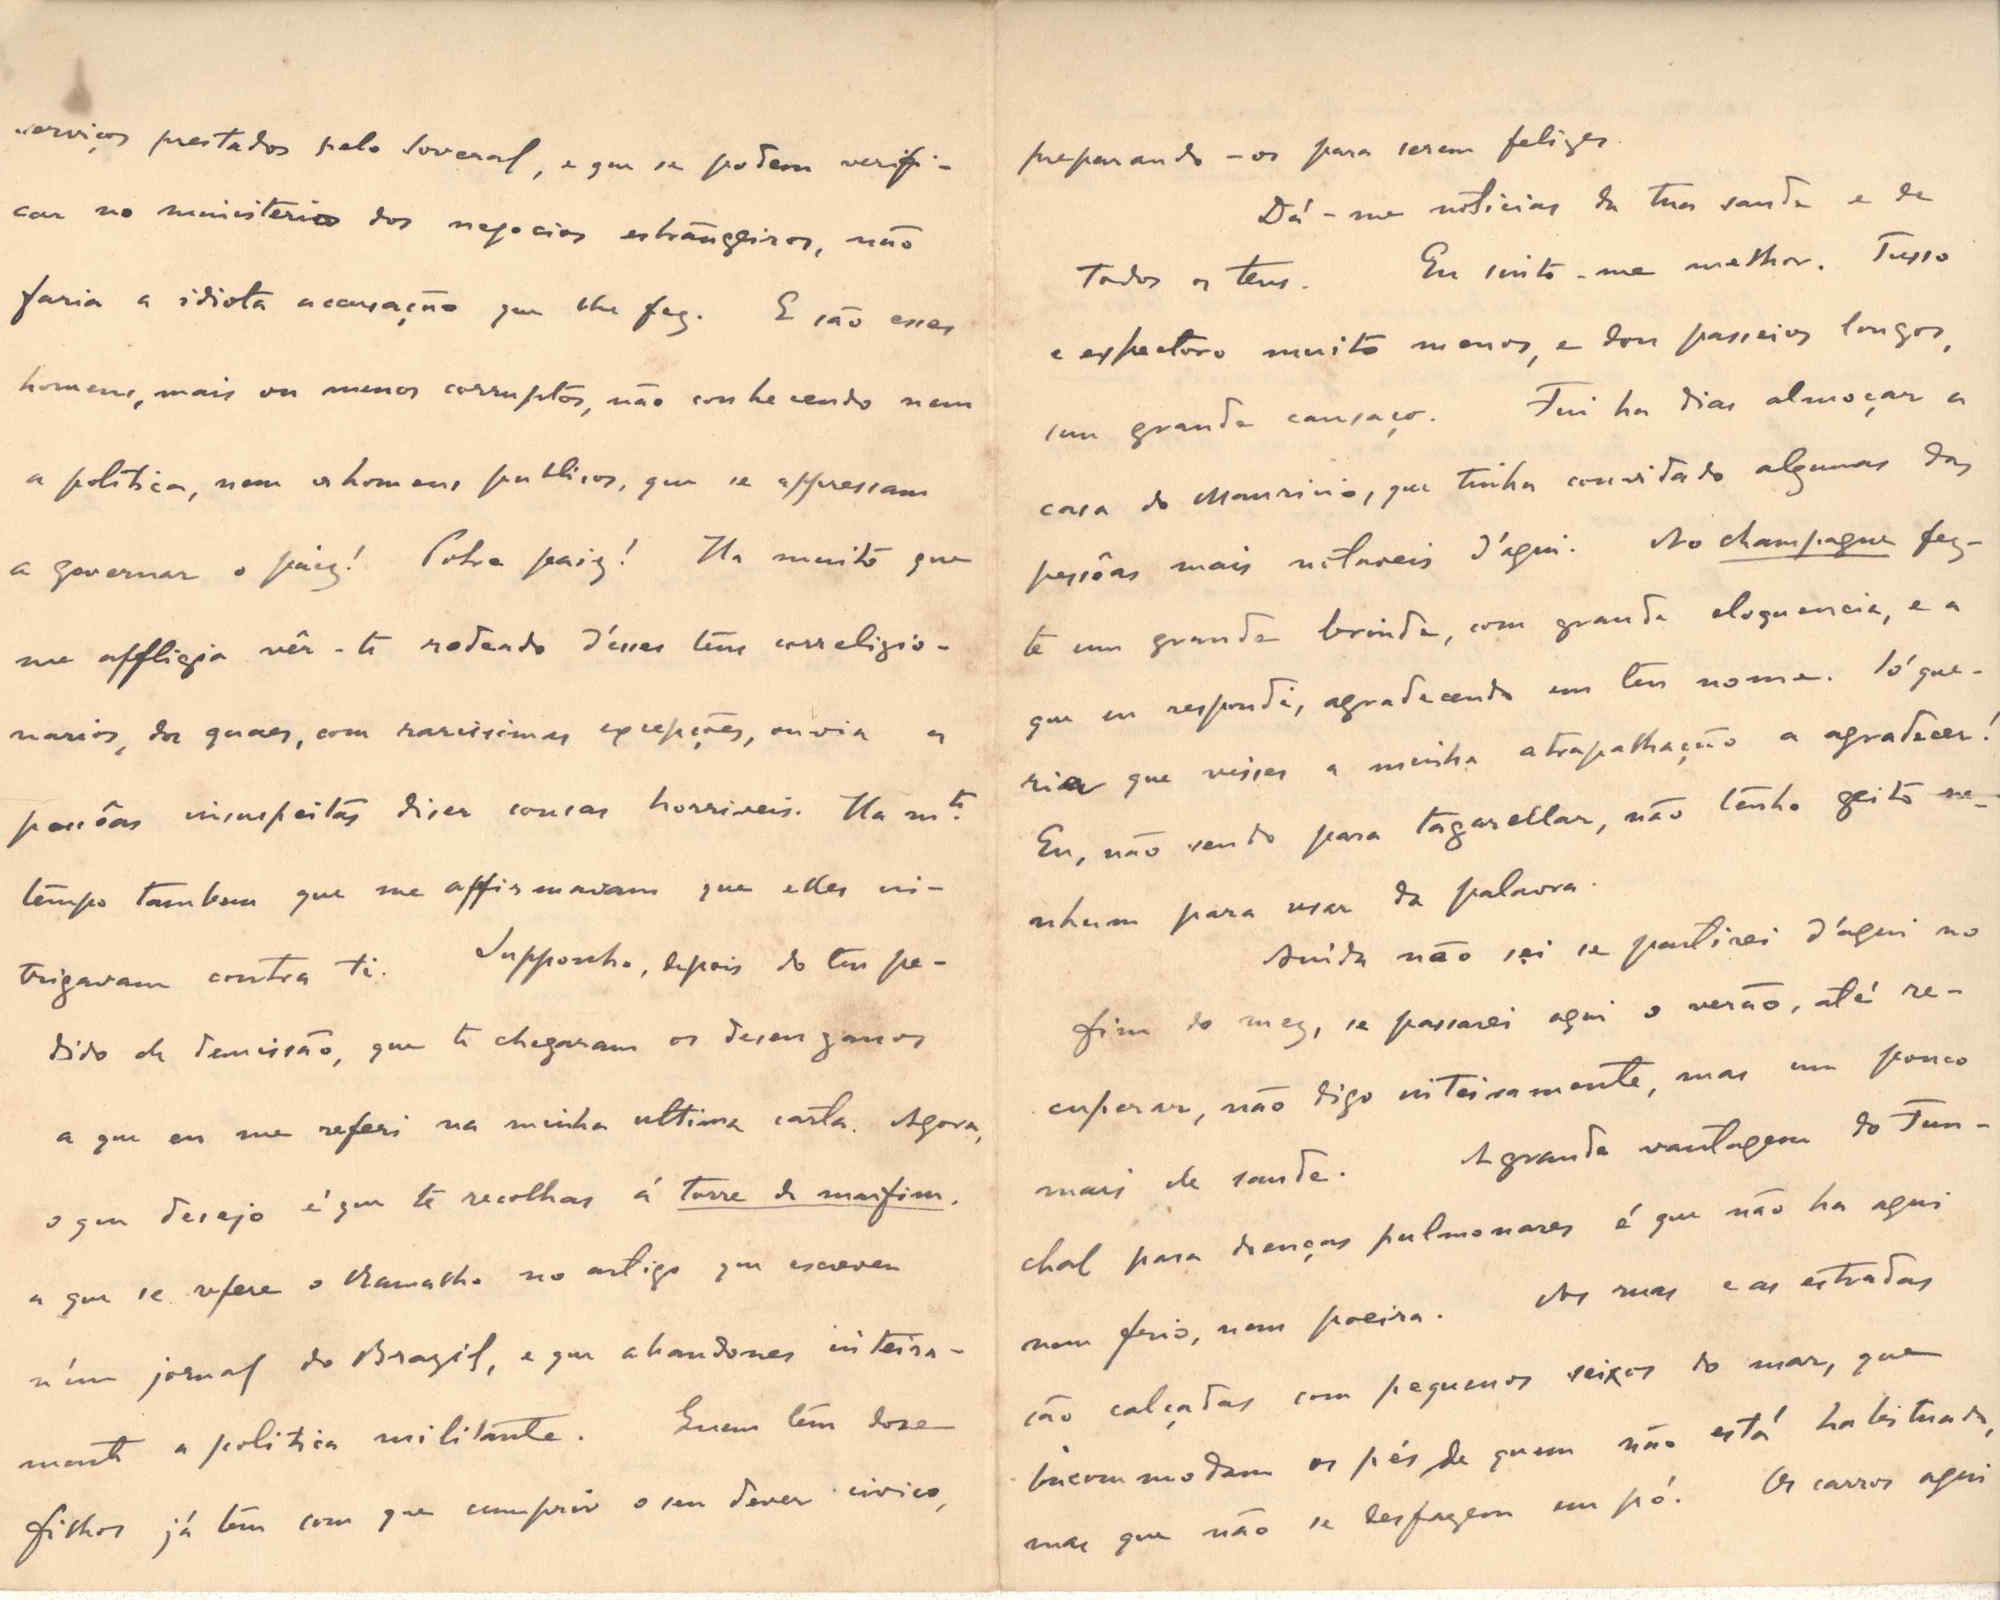 serviços prestados pelo Soveral, e que se podem verifi-
car no ministerio dos negocios estrangeiros, não
faria a idiota accusação que lhe fez. E são esses
homens, mais ou menos corruptos, não conhecendo nem
a politica, nem os homens publicos, que se appressam
a governar o paiz! Pobre paiz! Ha muito que
me affligia vêr-te rodeado d'esses teus correligio-
narios, dos quaes, com rarissimas excepções, ouvia a
pessôas insuspeitas diser cousas horriveis. Ha mto
tempo tambem que me affirmavam que elles in-
trigavam contra ti. Supponho, depois do teu pe-
dido de demissão, que te chegaram os desenganos
a que eu me referi na minha ultima carta. Agora,
o que desejo é que te recolhas á torre de marfim,
a que se refere o Ramalho no artigo que escreveu
n'um jornal do Brazil, e que abandones inteira-
mente a politica militante. Quem tem doze
filhos já tem com que cumprir o seu dever civico,
preparando-os para serem felizes.
Dá-me noticias da tua saude e de
todos os teus. Eu sinto-me melhor. Tusso
e expectoro muito menos, e dou passeios longos,
sem grande cansaço. Fui ha dias almoçar a
casa do Mauricio, que tinha convidado algumas das
pessôas mais notaveis d'aqui. Ao champagne fez-
te um grande brinde, com grande eloquencia, e a
que eu respondi, agradecendo em teu nome. Só que-
ria que visses a minha atrapalhação a agradecer!
Eu, não sendo para tagarellar, não tenho geito ne-
nhum para usar da palavra.
Ainda não sei se partirei d'aqui no
fim do mez, se passarei aqui o verão, até re-
cuperar, não digo inteiramente, mas um pouco
mais de saude. A grande vantagem do Fun-
chal para doenças pulmonares é que não ha aqui
nem frio, nem poeira. As ruas e as estradas
são calçadas com pequenos seixos do mar, que
incommodam os pés de quem não está habituado,
mas que não se desfazem em pó. Os carros aqui